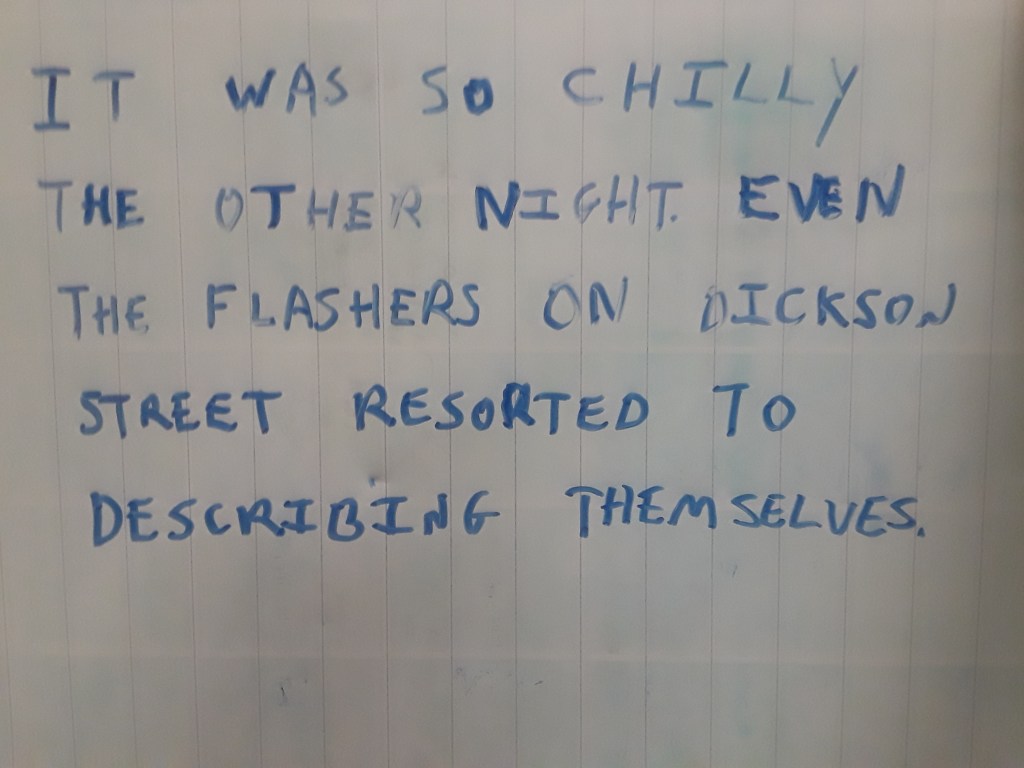 IT WAS SO CHILLY
THE OTHER NIGHT. EVEN
THE FLASHERS ON DICKSON
STREET RESORTED TO
DESCRIBING THEMSELVES.